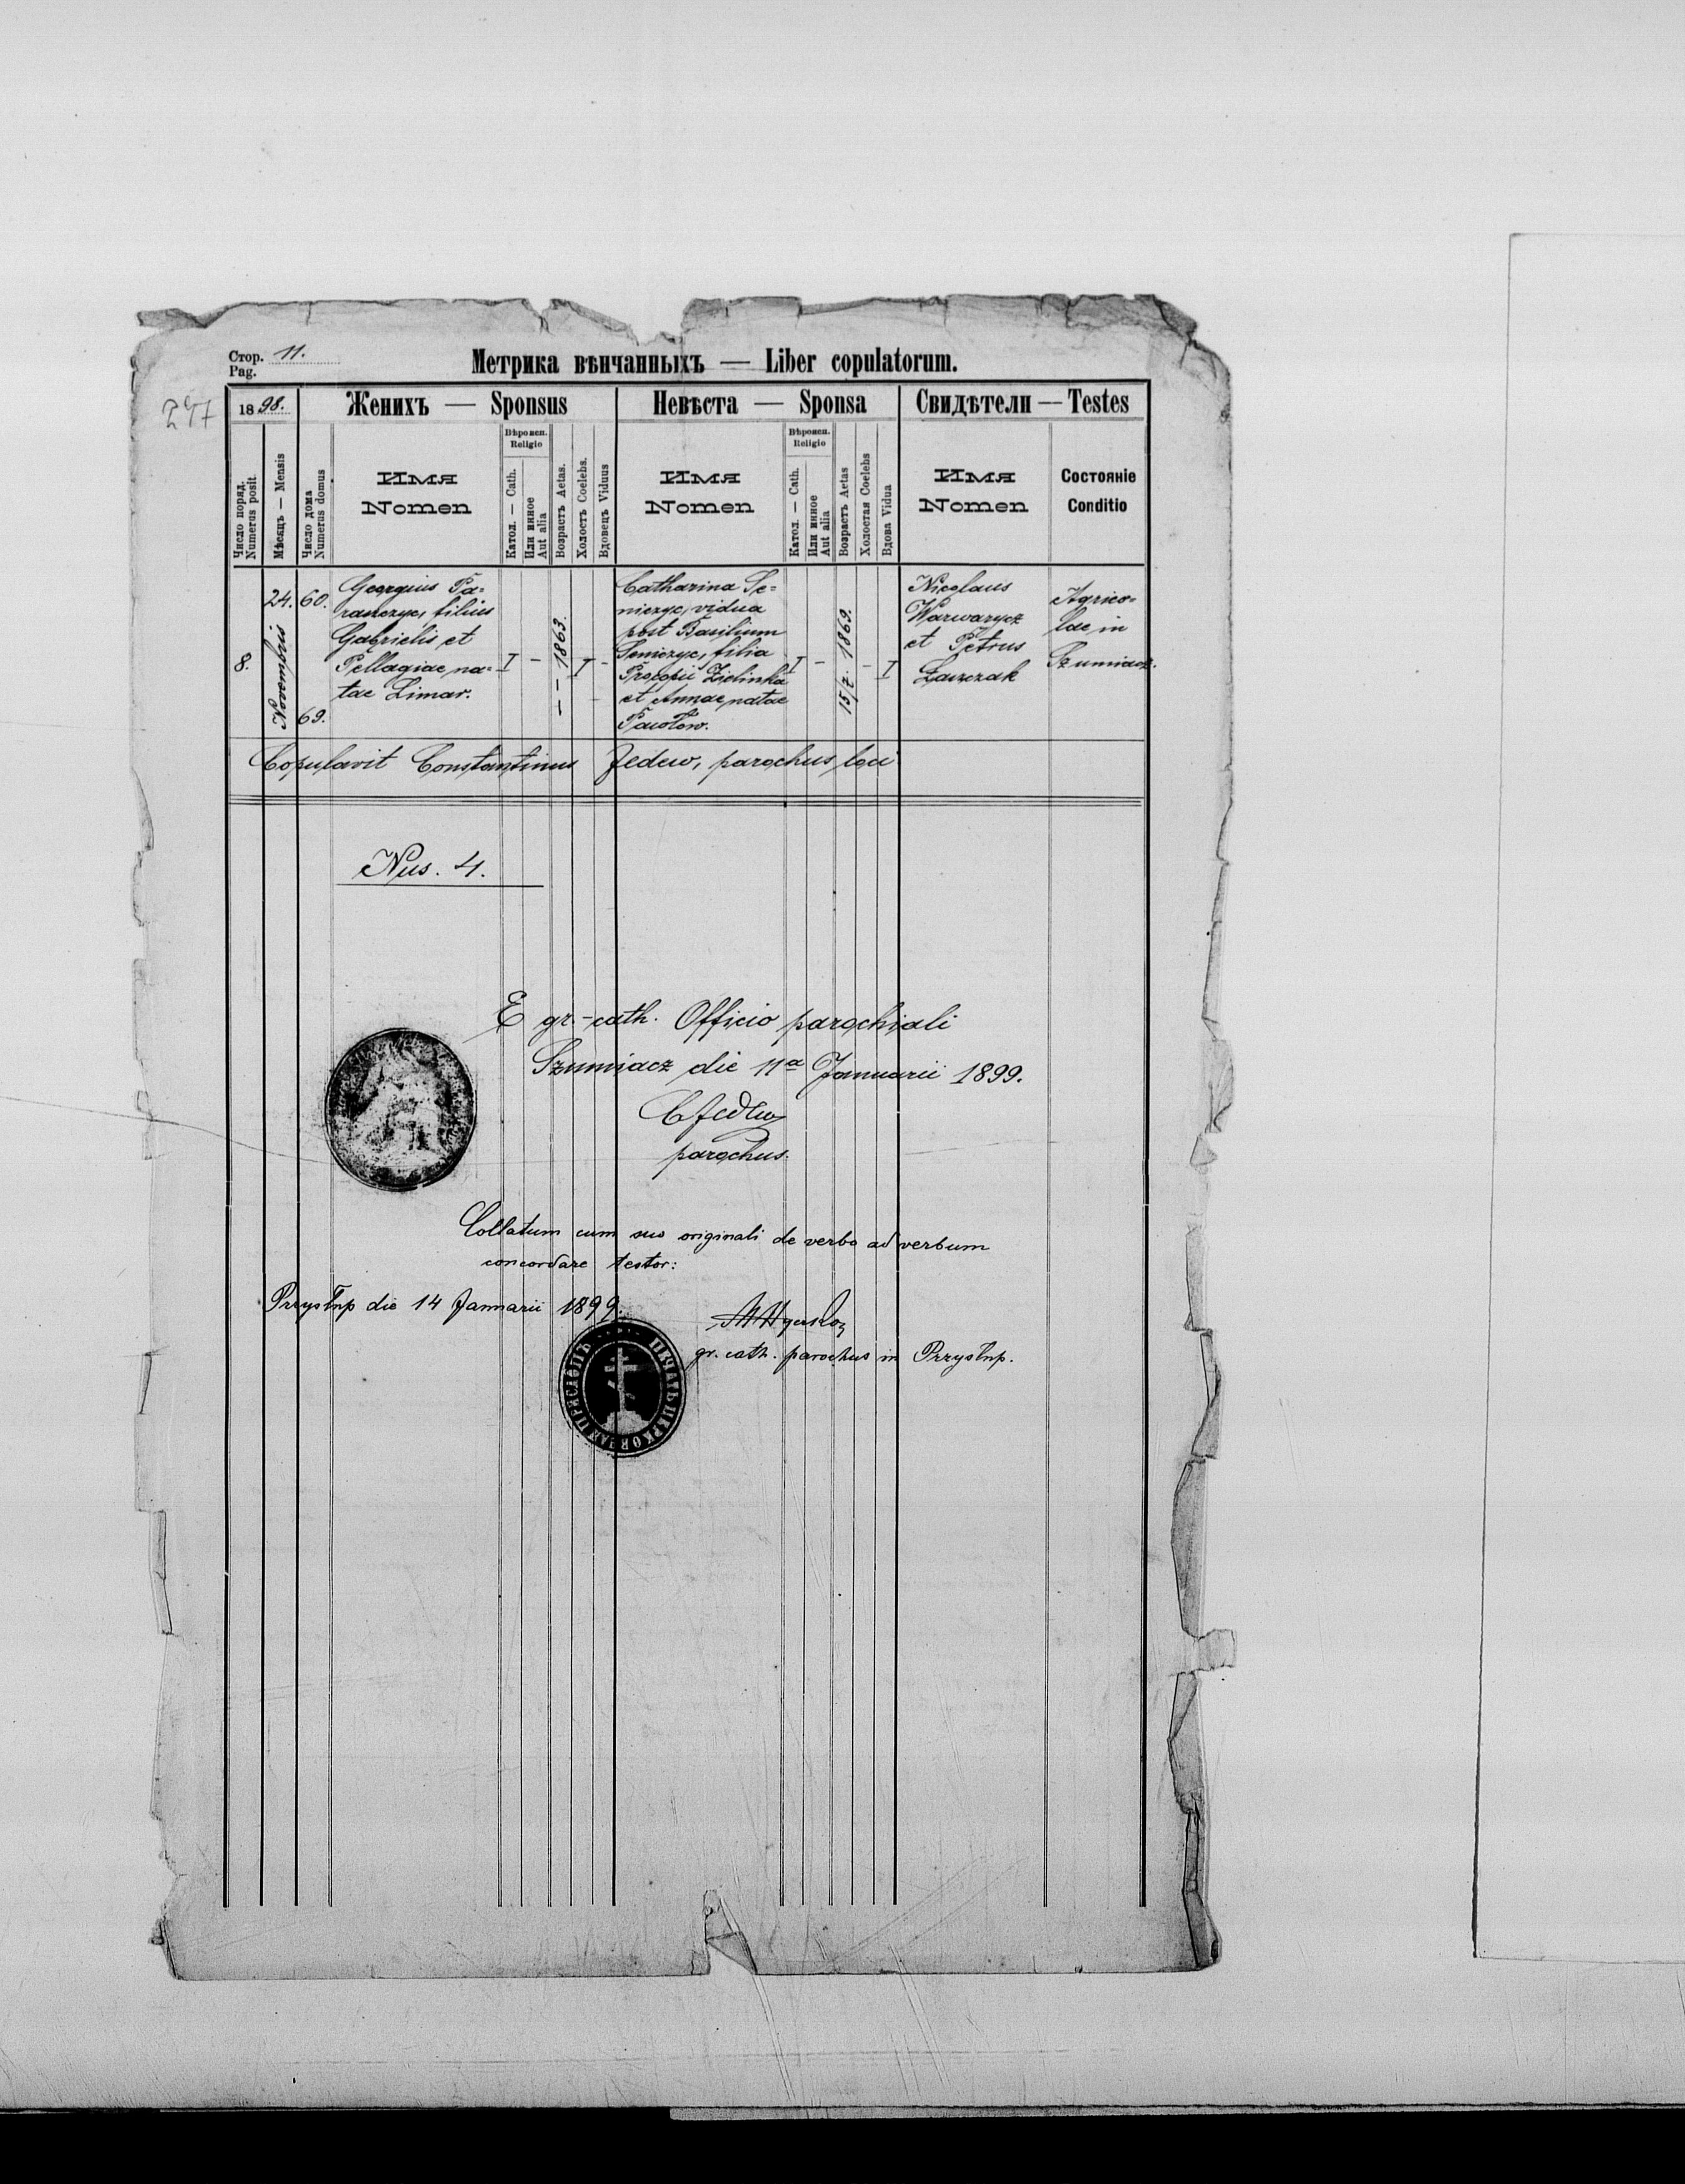 Стор. 11.
Pag.
Метрика вѣнчанныхъ — Liber copulatorum.
297
1898.
Женихъ — Sponsus
Невѣста — Sponsa
Свидѣтели — Testes
Число поряд.
Numerus posit.
Мѣсяцъ — Mensis
Число дома
Numerus domus
Имя
Nomen
Вѣроисп.
Religio
Катол. — Cath.
Или иное
Aut alia
Возрастъ Aetas.
Холостъ Coelebs.
Вдовецъ Viduus
Имя
Nomen
Вѣроисп.
Religio
Катол. — Cath.
Или иное
Aut alia
Возрастъ Aetas
Холостая Coelebs
Вдова Vidua
Имя
Nomen
Состояніе
Conditio
8.
24.
Novembris
60.
69.
Georgius Pa-
raszczyc, filius
Gabrielis et
Pellagiae na-
tae Limar.
I
-
- - 1863.
I
-
Catharina Se-
niczyc, vidua
post Basilium
Seniczyc, filia
Procopii Zielinka
et Annae natae
Pawlow.
I
-
15/7 1869.
-
I
Nicolaus
Warwarycz
et Petrus
Łaszczak
Agrico-
lae in
Szumiacz.
Copulavit Constantinus Fedew, parochus loci
Nus. 4.
E gr.-cath. Officio parochiali
Szumiacz die 11a Januarii 1899.
C Fedew
parochus.
Collatum cum suo originali de verbo ad verbum
concordare testor:
Przysłup die 14 Januarii 1899.
gr. cath. parochus in Przysłup.
ПЕЧАТЬ ЦЕРКОВНАЯ ПРИСЛОПЪ